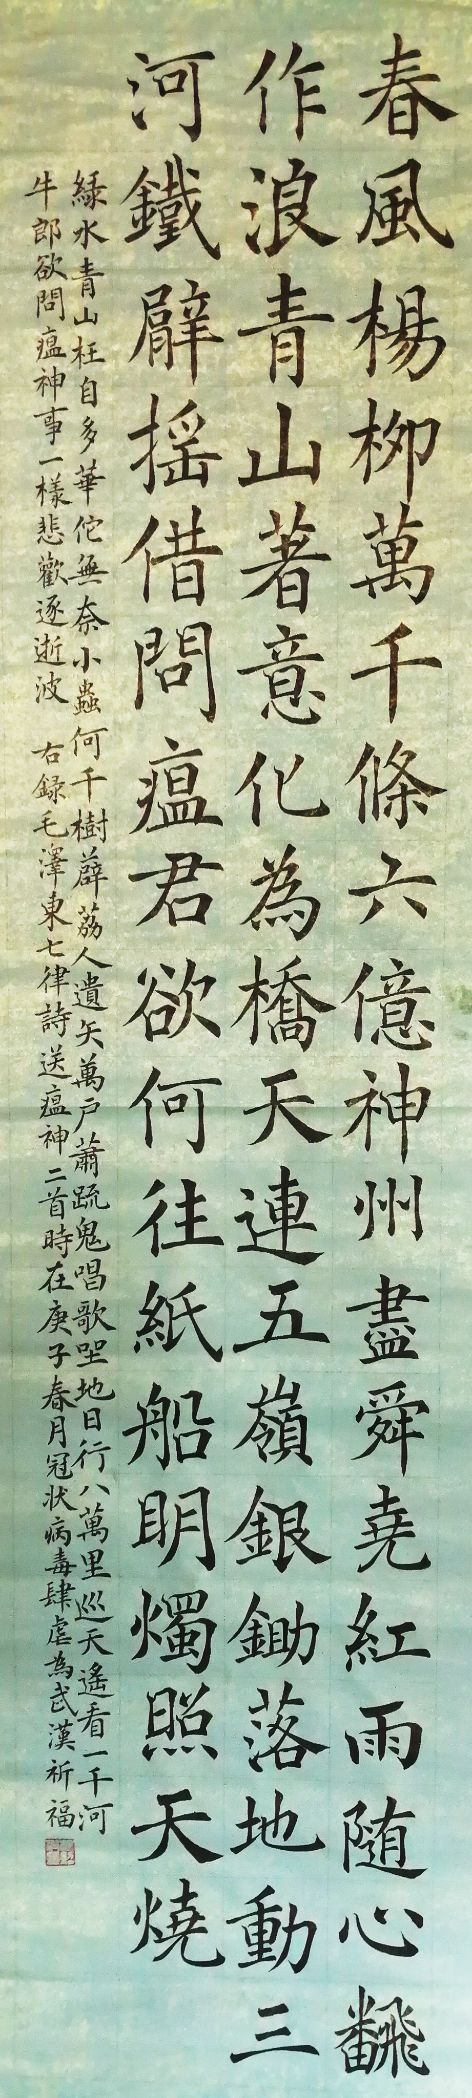 春風楊柳萬千條六億神州盡舜堯紅雨随心飜
作浪青山著意化為橋天連五嶺銀鋤落地動三
河鐵臂揺借問瘟君欲何往紙船明燭照天燒
緑水青山枉自多華佗無奈小蟲何千樹薜荔人遺矢萬戶蕭疏鬼唱歌坐地日行八萬里巡天遙看一千河
牛郎欲問瘟神事一樣悲歡逐逝波 右録毛澤東七律詩送瘟神二首時在庚子春月冠状病毒肆虐為武漢祈福